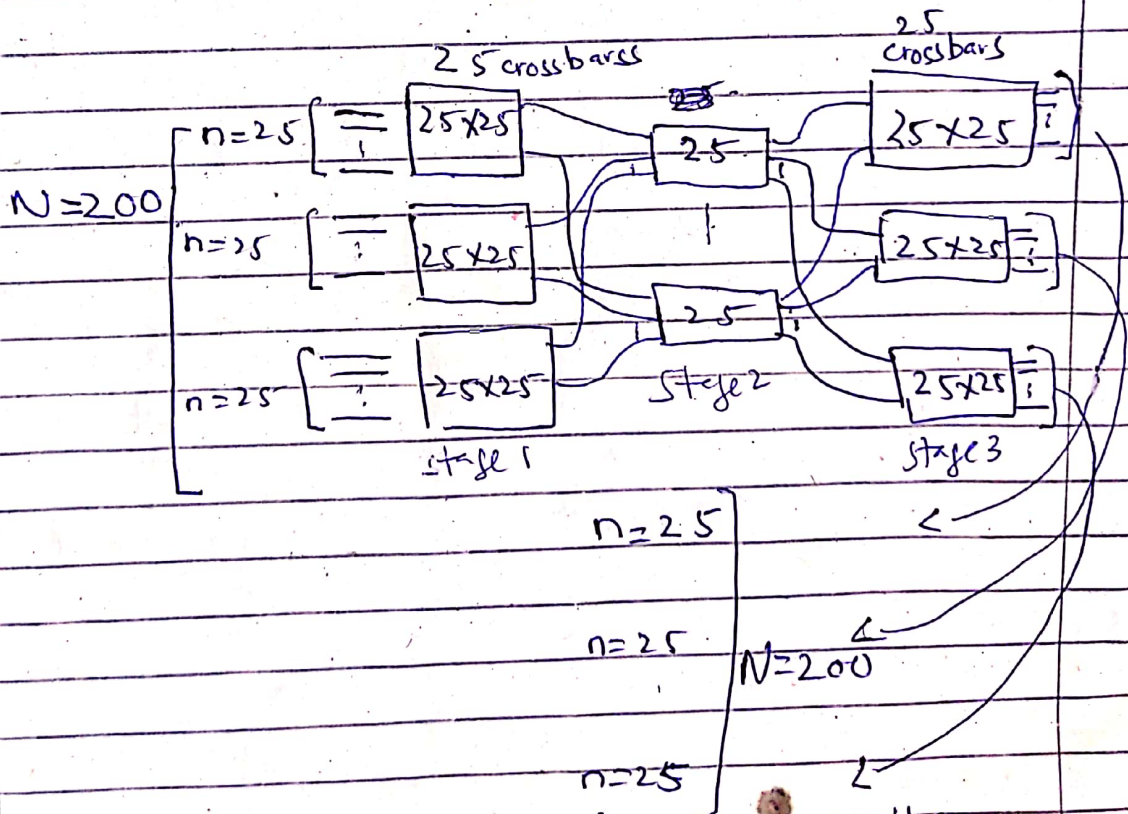 25
crossbars
25 crossbarss
n=25
25×25
25
25×25
N=200
n=25
25×25
25×25
25
n=25
25×25
25×25
stage 1
stage 2
stage 3
n=25
n=25
N=200
n=25